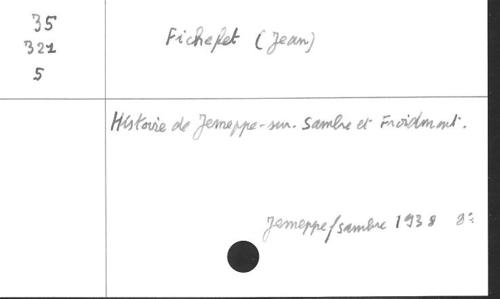 35
321
5
Fichefet (Jean)
Histoire de Jemeppe-sur-Sambre et Froidmont.
Jemeppe/sambre 1938 8°